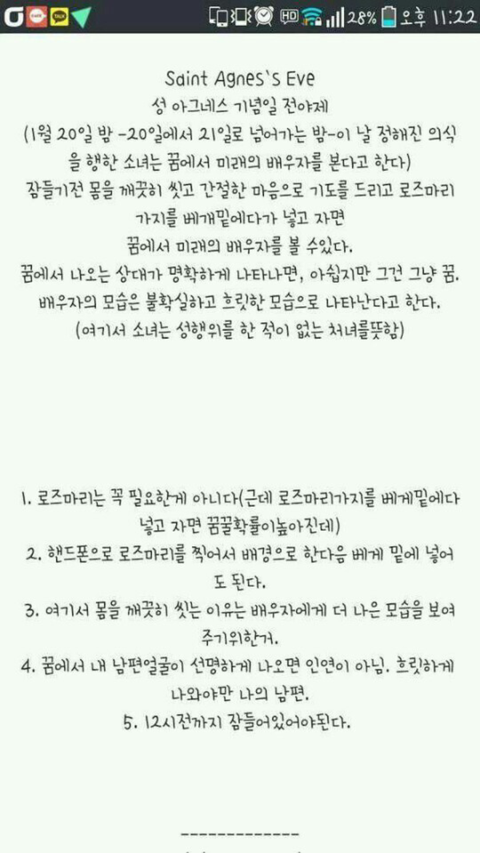 HD 28% 오후 11:22
Saint Agnes's Eve
성 아그네스 기념일 전야제
(1월 20일 밤 -20일에서 21일로 넘어가는 밤-이 날 정해진 의식
을 행한 소녀는 꿈에서 미래의 배우자를 본다고 한다)
잠들기전 몸을 깨끗히 씻고 간절한 마음으로 기도를 드리고 로즈마리
가지를 베개밑에다가 넣고 자면
꿈에서 미래의 배우자를 볼 수있다.
꿈에서 나오는 상대가 명확하게 나타나면, 아쉽지만 그건 그냥 꿈.
배우자의 모습은 불확실하고 흐릿한 모습으로 나타난다고 한다.
(여기서 소녀는 성행위를 한 적이 없는 처녀를뜻함)
1. 로즈마리는 꼭 필요한게 아니다(근데 로즈마리가지를 베게밑에다
넣고 자면 꿈꿀확률이높아진데)
2. 핸드폰으로 로즈마리를 찍어서 배경으로 한다음 베게 밑에 넣어
도 된다.
3. 여기서 몸을 깨끗히 씻는 이유는 배우자에게 더 나은 모습을 보여
주기위한거.
4. 꿈에서 내 남편얼굴이 선명하게 나오면 인연이 아님. 흐릿하게
나와야만 나의 남편.
5. 12시전까지 잠들어있어야된다.
-------------